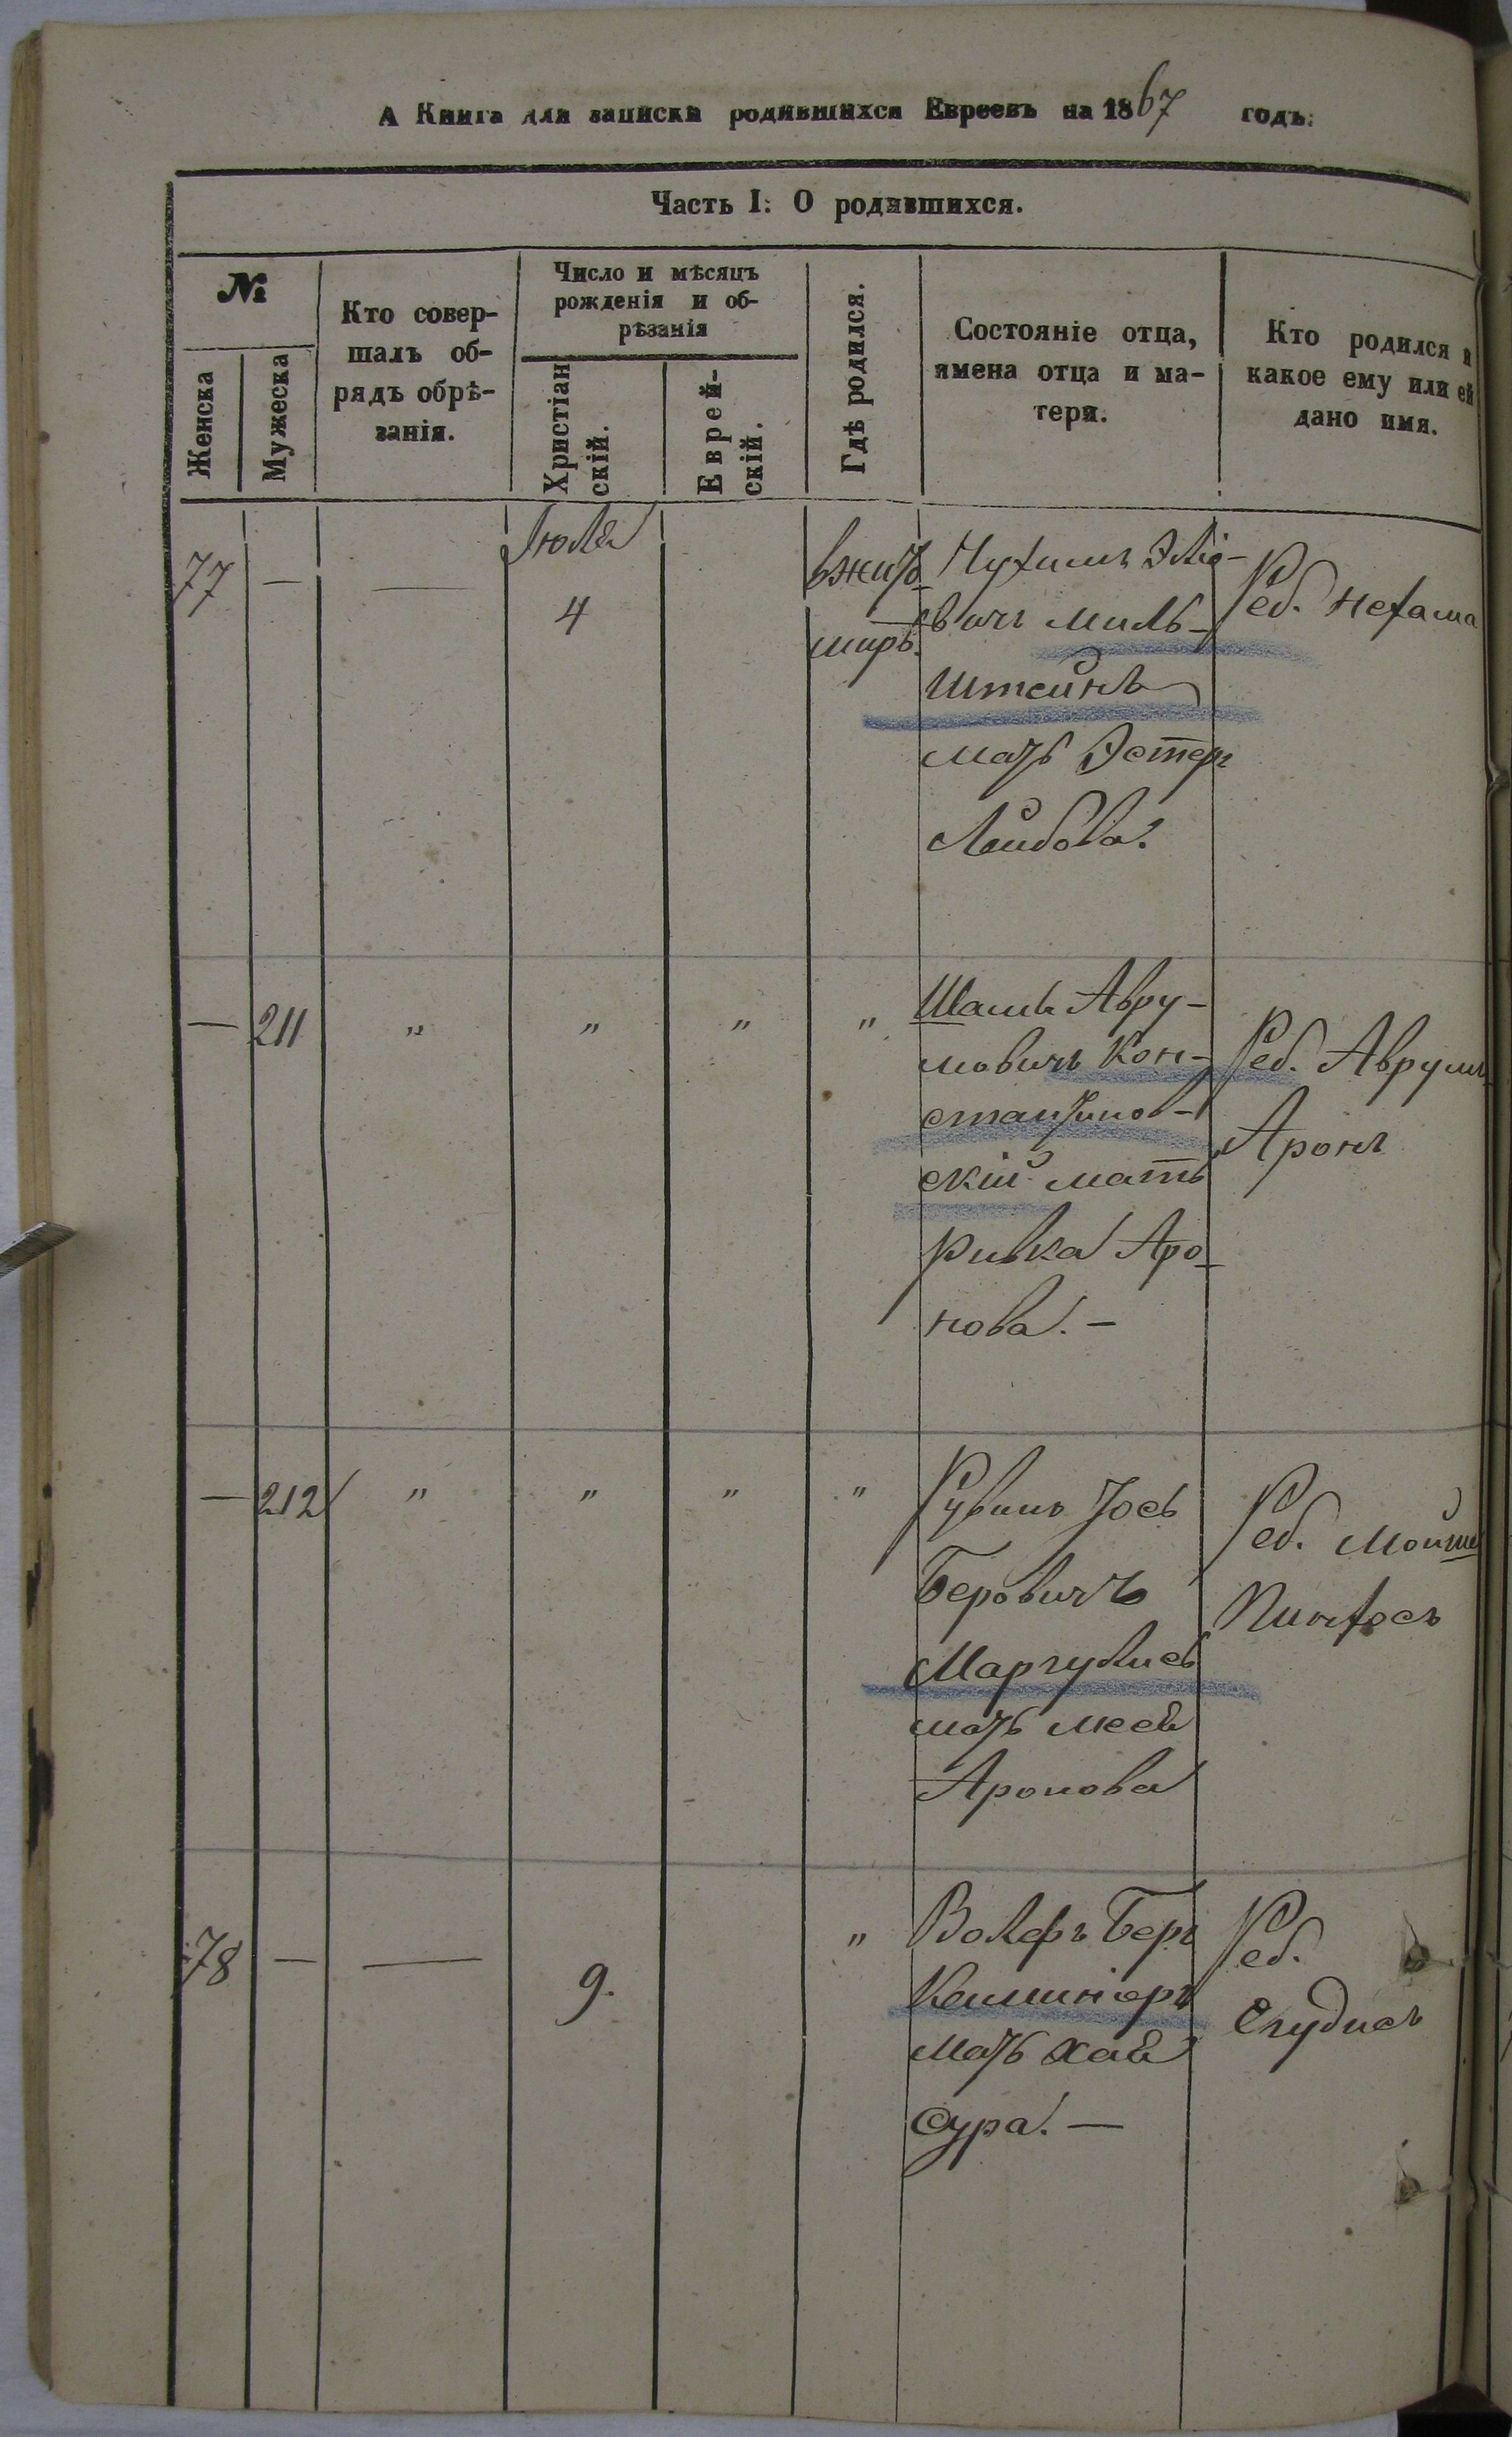 А Книга для записки родившихся Евреевъ на 1867 годъ.
Часть I: О родившихся.
№
Женска
Мужеска
Кто совер-
шалъ об-
рядъ обрѣ-
занія.
Число и мѣсяцъ
рожденія и об-
рѣзанія
Христіан
скій.
Еврей-
скій.
Гдѣ родился.
Состояніе отца,
имена отца и ма-
тери.
Кто родился и
какое ему или ей
дано имя.
Іюля
77 — — 4
вжито
миръ.
Нухимъ Эліо-
вичъ Миль-
штейнъ
мать Эстеръ
Лейбова.
Реб. Нехама
— 211 „ „ „ „
Шаль Авру-
мовичъ Кон-
стантинов-
скій мать
Ривка Аро-
нова. —
Реб. Аврумъ
Аронъ
— 212 „ „ „ „
Рувинъ Іось
Беровичъ
Маргулисъ
мать
Аронова
Реб. Мойше
Пинхосъ
78 — — 9. „
Волефъ Беръ
мать Хая
Сура. —
Реб.